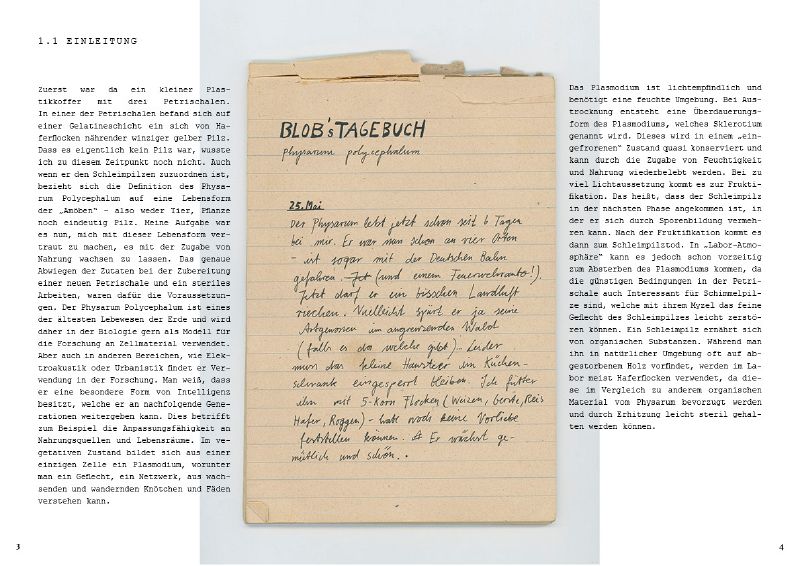 1.1 EINLEITUNG
Zuerst war da ein kleiner Plas-
tikkoffer mit drei Petrischalen.
In einer der Petrischalen befand sich auf
einer Gelatineschicht ein sich von Ha-
ferflocken nährender winziger gelber Pilz.
Dass es eigentlich kein Pilz war, wusste
ich zu diesem Zeitpunkt noch nicht. Auch
wenn er den Schleimpilzen zuzuordnen ist,
bezieht sich die Definition des Physa-
rum Polycephalum auf eine Lebensform
der „Amöben“ – also weder Tier, Pflanze
noch eindeutig Pilz. Meine Aufgabe war
es nun, mich mit dieser Lebensform ver-
traut zu machen, es mit der Zugabe von
Nahrung wachsen zu lassen. Das genaue
Abwiegen der Zutaten bei der Zubereitung
einer neuen Petrischale und ein steriles
Arbeiten, waren dafür die Voraussetzun-
gen. Der Physarum Polycephalum ist eines
der ältesten Lebewesen der Erde und wird
daher in der Biologie gern als Modell für
die Forschung an Zellmaterial verwendet.
Aber auch in anderen Bereichen, wie Elek-
troakustik oder Urbanistik findet er Ver-
wendung in der Forschung. Man weiß, dass
er eine besondere Form von Intelligenz
besitzt, welche er an nachfolgende Gene-
rationen weitergeben kann. Dies betrifft
zum Beispiel die Anpassungsfähigkeit an
Nahrungsquellen und Lebensräume. Im ve-
getativen Zustand bildet sich aus einer
einzigen Zelle ein Plasmodium, worunter
man ein Geflecht, ein Netzwerk, aus wach-
senden und wandernden Knötchen und Fäden
verstehen kann.
3
BLOB's TAGEBUCH
physarum polycephalum
25. Mai
Der Physarum lebt jetzt schon seit 6 Tagen
bei mir. Er war nun schon an vier Orten
- ist sogar mit der Deutschen Bahn
gefahren. (und einem Feuerwehrauto!).
Jetzt darf er ein bisschen Landluft
riechen. Vielleicht spürt er ja seine
Artgenossen im angrenzenden Wald
(falls es da welche gibt) - Leider
muss das kleine Haustier im Küchen-
schrank eingesperrt bleiben. Ich fütter
ihn mit 5-Korn Flocken (Weizen, Gerste, Reis
Hafer, Roggen) - hab noch keine Vorliebe
feststellen können. Er wächst ge-
mütlich und schön.
Das Plasmodium ist lichtempfindlich und
benötigt eine feuchte Umgebung. Bei Aus-
trocknung entsteht eine Überdauerungs-
form des Plasmodiums, welches Sklerotium
genannt wird. Dieses wird in einem „ein-
gefrorenen“ Zustand quasi konserviert und
kann durch die Zugabe von Feuchtigkeit
und Nahrung wiederbelebt werden. Bei zu
viel Lichtaussetzung kommt es zur Frukti-
fikation. Das heißt, dass der Schleimpilz
in der nächsten Phase angekommen ist, in
der er sich durch Sporenbildung vermeh-
ren kann. Nach der Fruktifikation kommt es
dann zum Schleimpilztod. In „Labor-Atmo-
sphäre“ kann es jedoch schon vorzeitig
zum Absterben des Plasmodiums kommen, da
die günstigen Bedingungen in der Petri-
schale auch Interessant für Schimmelpil-
ze sind, welche mit ihrem Myzel das feine
Geflecht des Schleimpilzes leicht zerstö-
ren können. Ein Schleimpilz ernährt sich
von organischen Substanzen. Während man
ihn in natürlicher Umgebung oft auf ab-
gestorbenem Holz vorfindet, werden im La-
bor meist Haferflocken verwendet, da die-
se im Vergleich zu anderem organischen
Material vom Physarum bevorzugt werden
und durch Erhitzung leicht steril gehal-
ten werden können.
4